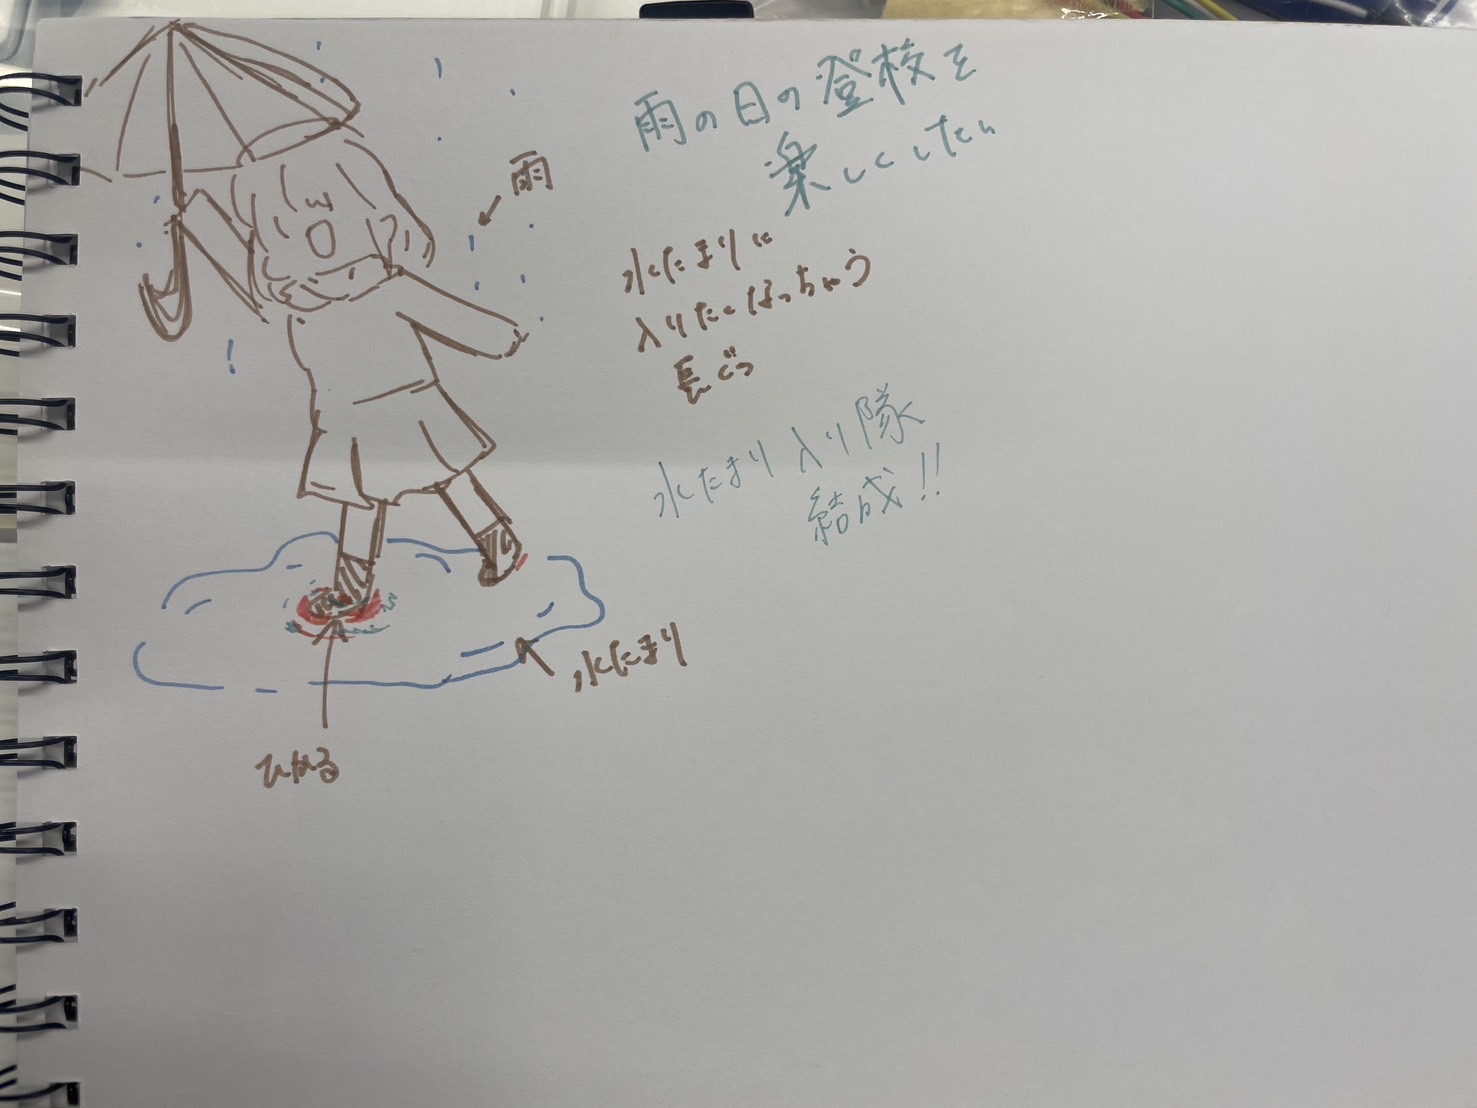 雨の日の登校を
楽しくしたい
雨
水たまりに
入りたくなっちゃう
長ぐつ
水たまり入り隊
結成!!
水たまり
ひかる